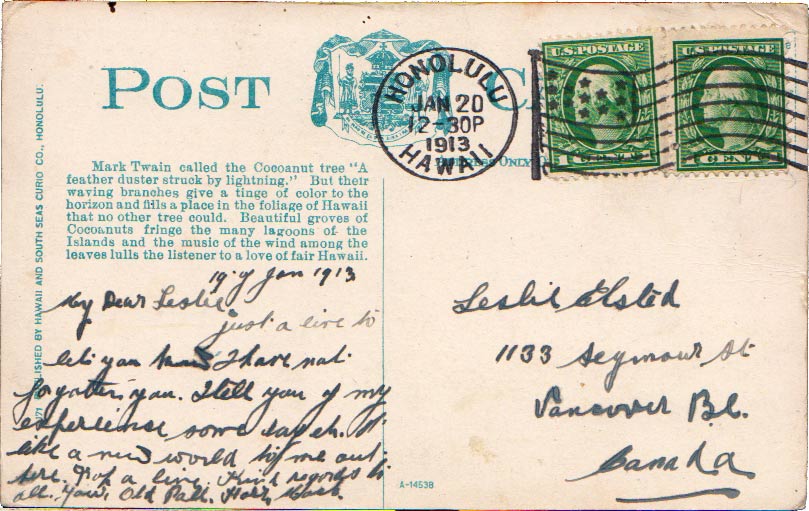 POST CA
HONOLULU
JAN 20
12-30P
1913
HAWAII
U.S. POSTAGE
1 CENT 1
U.S. POSTAGE
CENT
ADDRESS ONLY
Mark Twain called the Cocoanut tree "A
feather duster struck by lightning." But their
waving branches give a tinge of color to the
horizon and fills a place in the foliage of Hawaii
that no other tree could. Beautiful groves of
Cocoanuts fringe the many lagoons of the
Islands and the music of the wind among the
leaves lulls the listener to a love of fair Hawaii.
PUBLISHED BY HAWAII AND SOUTH SEAS CURIO CO., HONOLULU.
19 Jan 1913
My Dear Leslie
just a line to
let you know I have not
forgotten you. I tell you of my
experience some day eh. It
like a new world to me out
here. Drop a line. Kind regards to
all. Yours Old Pall.
Leslie Elsted
1133 Seymour St
Vancouver B.C.
Canada
A-14538